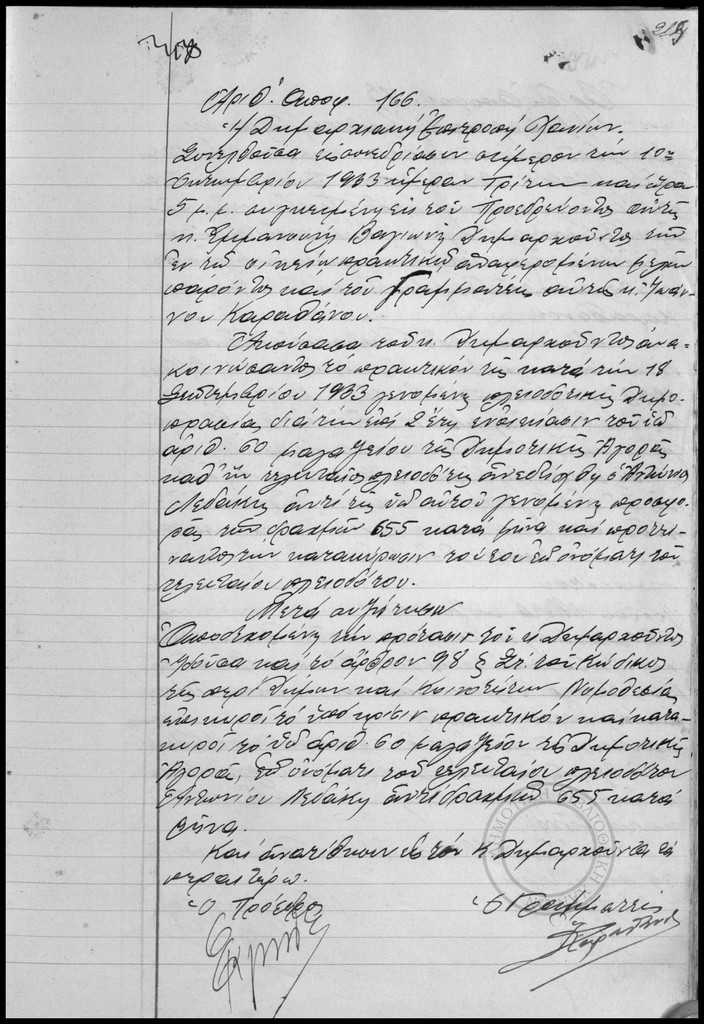 Αριθ. Αποφ. 166.
Ἡ Δημαρχιακὴ Ἐπιτροπὴ Χανίων.
Συνελθοῦσα εἰς συνεδρίασιν σήμερον τὴν 10ην
Ὀκτωμβρίου 1933 ἡμέραν Τρίτην καὶ ὥραν
5 μ.μ. συγκειμένη ἐκ τοῦ Προεδρεύοντος αὐτῆς
κ. Ἐμμανουὴλ Βαγιωνῆ Δημαρχοῦντος τῶν
ἐν τῷ οἰκείῳ πρακτικῷ ἀναφερομένων μελῶν
παρόντος καὶ τοῦ Γραμματέως αὐτῆς κ. Ἰωάν-
νου Καραθάνου.
Ἀκούσασα τοῦ κ. Δημαρχοῦντος ἀνα-
κοινώσαντος τὸ πρακτικὸν τῆς κατὰ τὴν 18
Σεπτεμβρίου 1933 γενομένης πλειοδοτικῆς Δημο-
πρασίας διὰ τὴν ἐπὶ 2 ἔτη ἐνοικίασιν τοῦ ὑπ'
ἀριθ. 60 μαγαζείου τῆς Δημοτικῆς Ἀγορᾶς
καθ' ἣν τελευταῖος πλειοδότης ἀνεδείχθη ὁ Ἀντώνιος
Λεδάκης ἀντὶ τῆς ὑπ' αὐτοῦ γενομένης προσφο-
ρᾶς τῶν δραχμῶν 655 κατὰ μῆνα καὶ προτεί-
ναντος τὴν κατακύρωσιν τούτου ἐπ' ὀνόματι τοῦ
τελευταίου πλειοδότου.
Μετὰ συζήτησιν
Ἀποδεχομένη τὴν πρότασιν τοῦ κ. Δημαρχοῦντος
Ἰδοῦσα καὶ τὸ ἄρθρον 98 § Στ. τοῦ Κώδικος
τῆς περὶ Δήμων καὶ Κοινοτήτων Νομοθεσίας
ἐπικυροῖ τὸ ὑπὸ κρίσιν πρακτικὸν καὶ κατα-
κυροῖ τὸ ὑπ' ἀριθ. 60 μαγαζεῖον τῆς Δημοτικῆς
Ἀγορᾶς, ἐπ' ὀνόματι τοῦ τελευταίου πλειοδότου
Ἀντωνίου Λεδάκη ἀντὶ δραχμῶν 655 κατὰ
μῆνα.
Καὶ ἀνατίθησιν εἰς τὸν κ. Δημαρχοῦντα τὰ
περαιτέρω.
Ὁ Πρόεδρος
Ὁ Γραμματεὺς